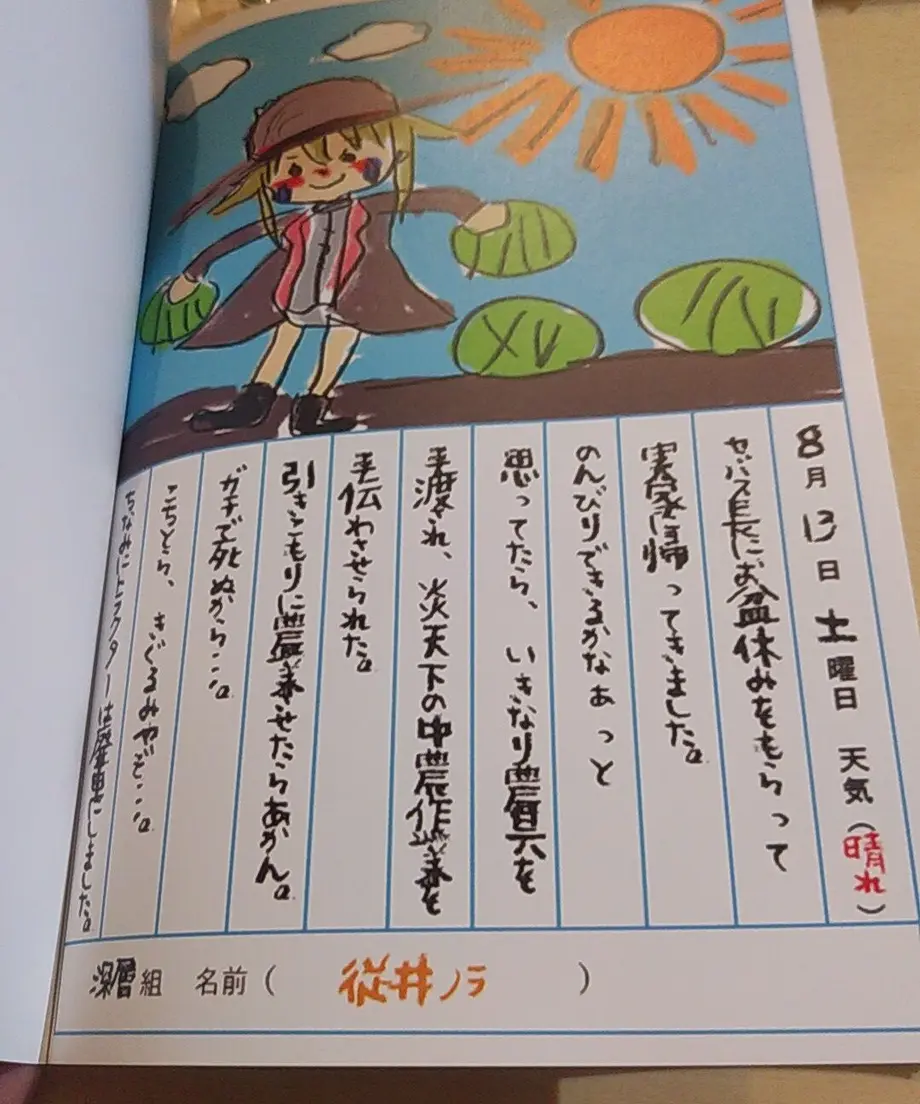 8月13日土曜日 天気(晴れ)
セバス長にお盆休みをもらって
実家に帰ってきました。
のんびりできるかなぁっと
思ってたら、いきなり農具を
手渡され、炎天下の中農作業を
手伝わさせられた。
引きこもりに農業させたらあかん。
ガチで死ぬから…。
こちとら、きぐるみやぞ…。
ちなみにトラクターは廃車にしました。
深層組 名前( 従井ノラ )